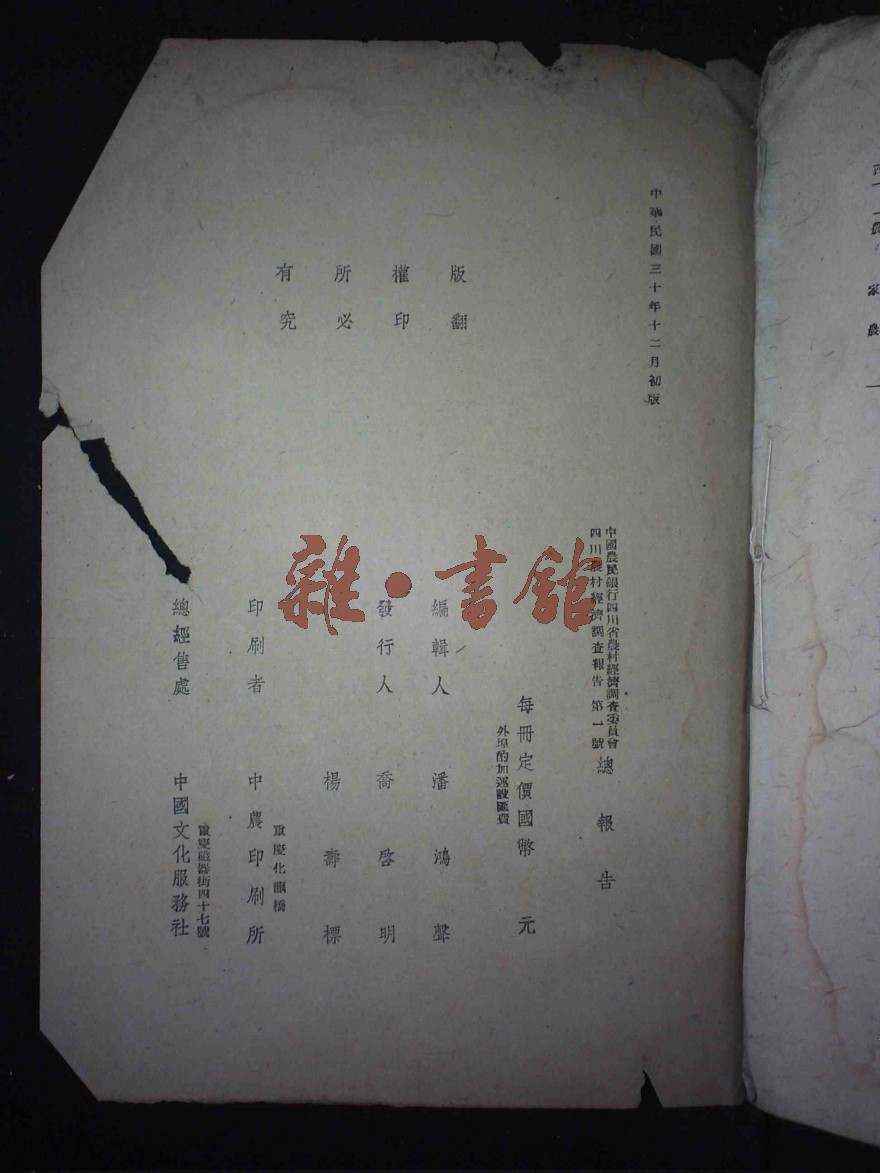 中華民國三十年十二月初版
版權所有
翻印必究
中國農民銀行四川省農村經濟調查委員會
四川農村經濟調查報告 第一號
總報告
每冊定價國幣 元
外埠酌加運設匯費
編輯人 潘鴻聲
發行人 喬啓明
楊壽標
印刷者 中農印刷所
重慶化龍橋
總經售處 中國文化服務社
重慶磁器街四十七號
雜·書館
家
農